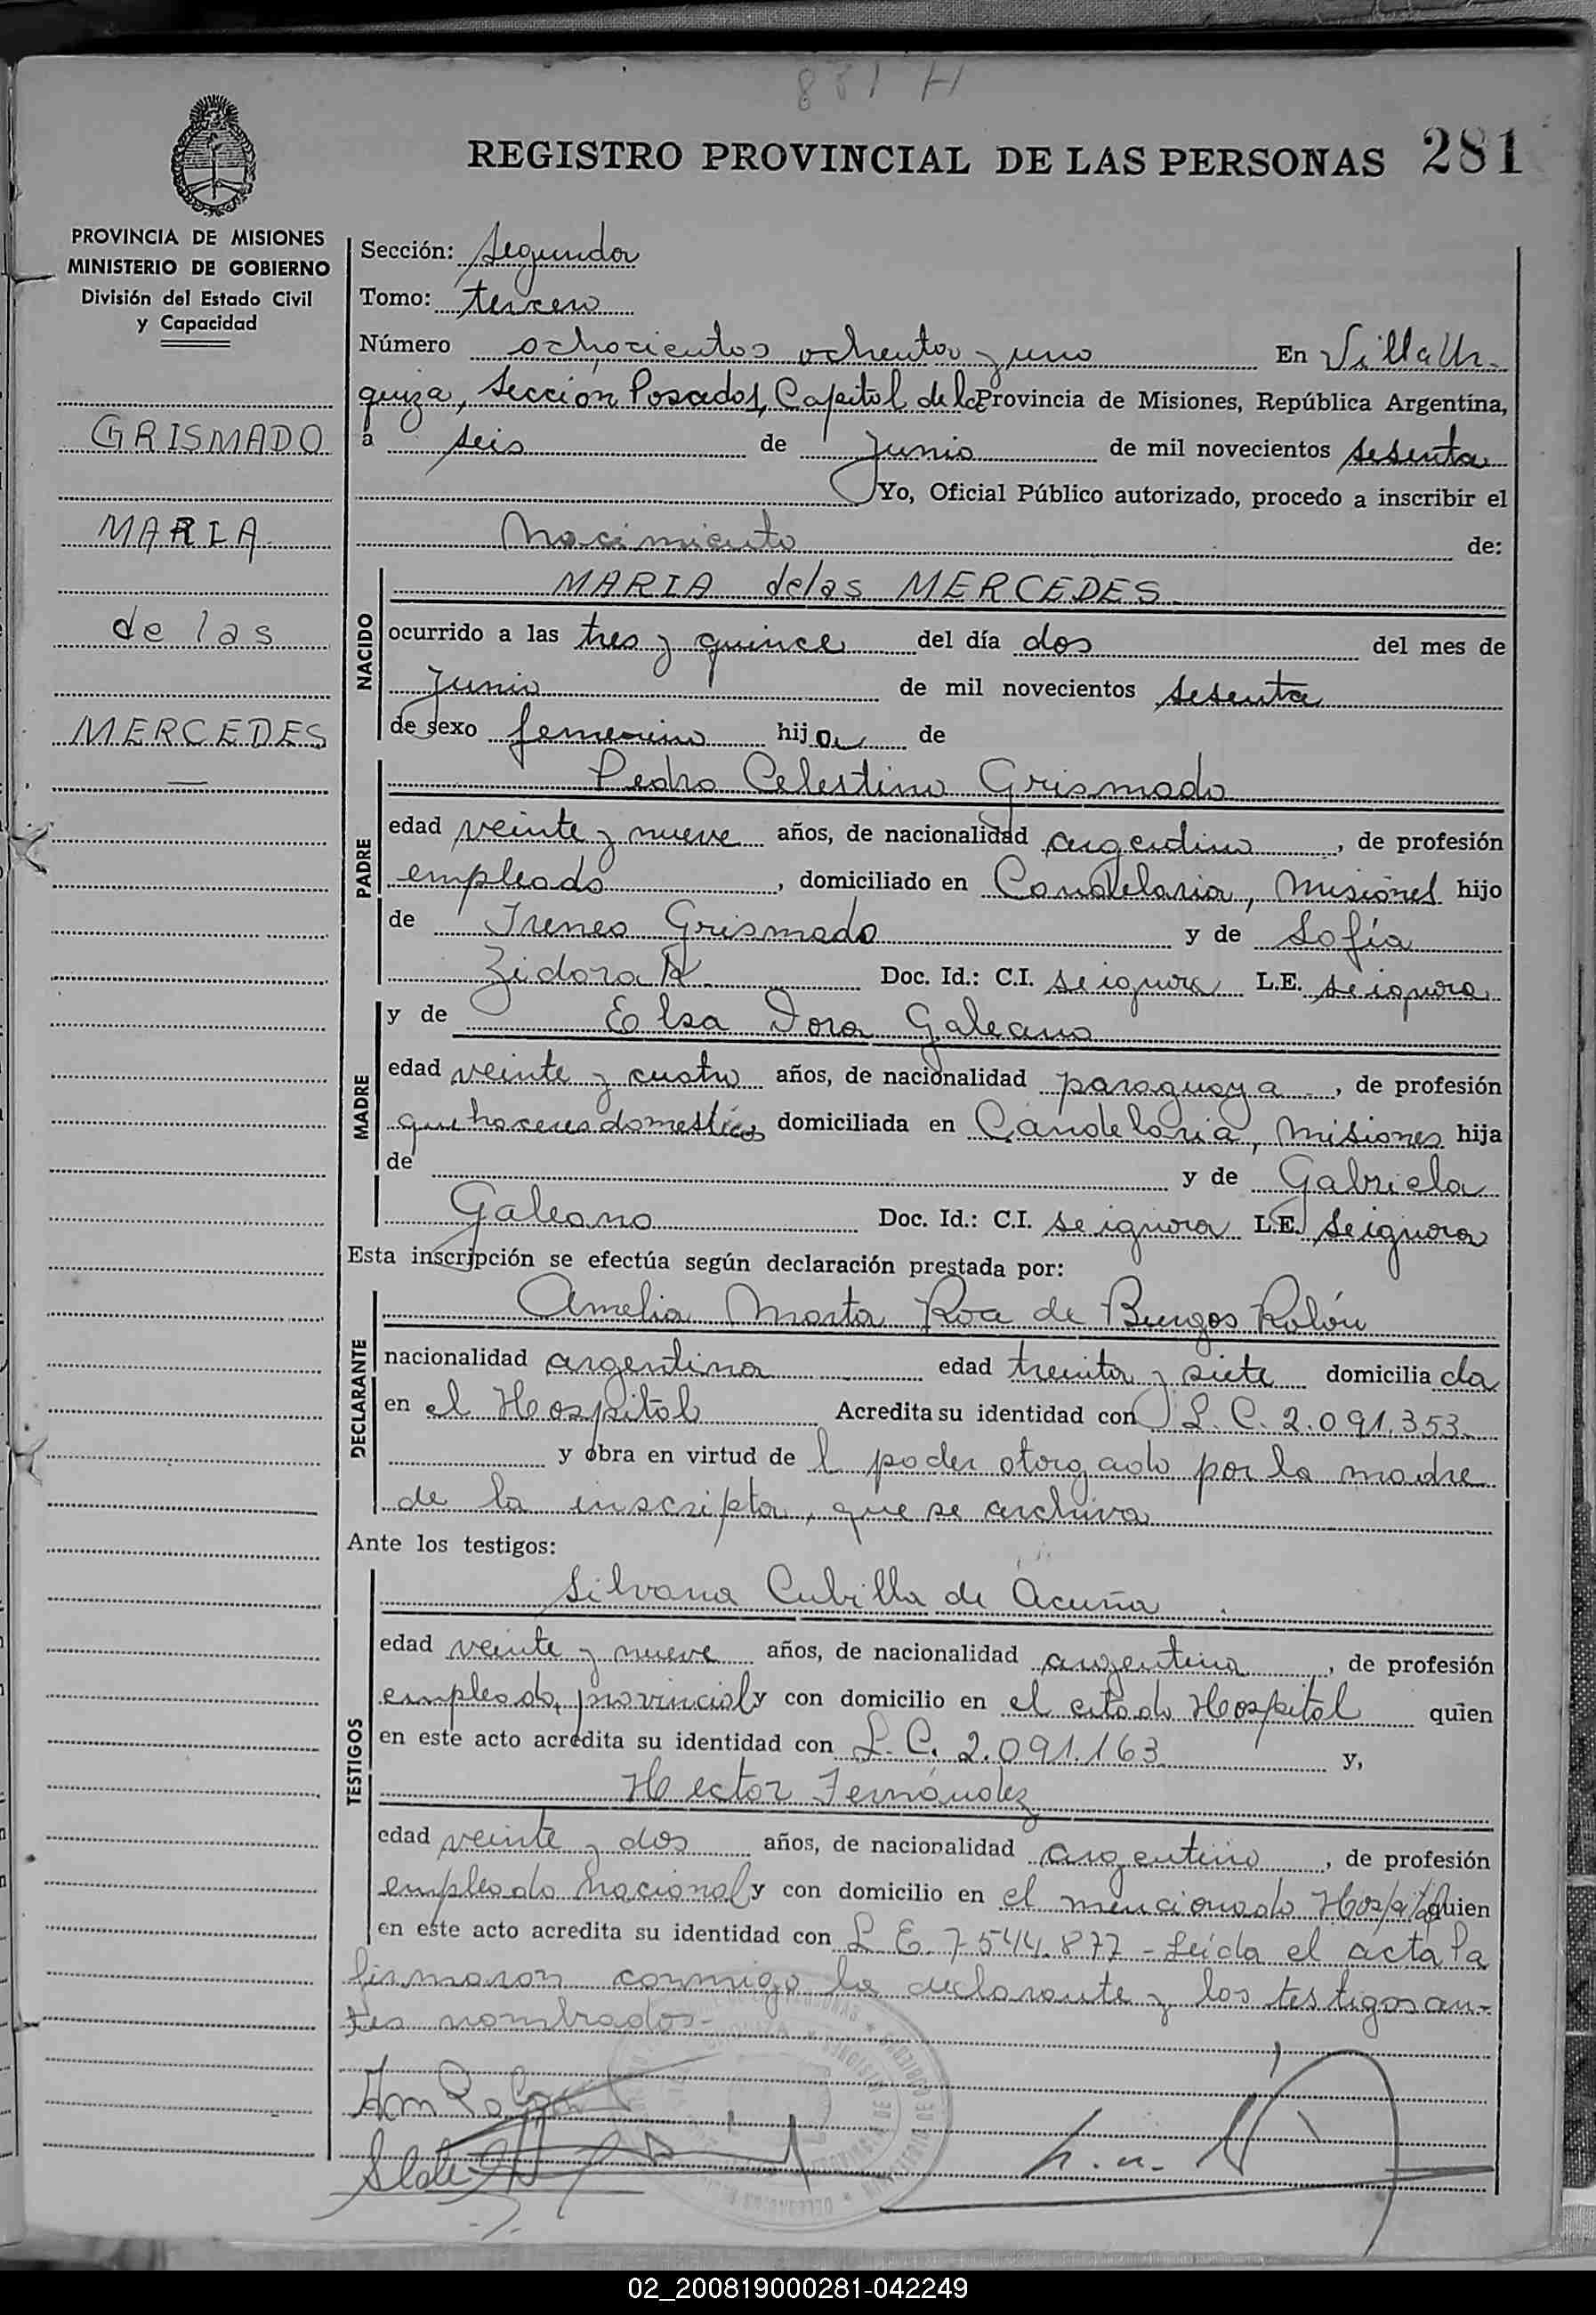 881 H
REGISTRO PROVINCIAL DE LAS PERSONAS 281
PROVINCIA DE MISIONES
MINISTERIO DE GOBIERNO
División del Estado Civil
y Capacidad
GRISMADO
MARIA
de las
MERCEDES
Sección: Segunda
Tomo: tercero
Número ochocientos ochenta y uno En Villa Ur-
quiza, Sección Posadas, Capital de la Provincia de Misiones, República Argentina,
a seis de Junio de mil novecientos sesenta
Yo, Oficial Público autorizado, procedo a inscribir el
Nacimiento de:
NACIDO
MARIA de las MERCEDES
ocurrido a las tres y quince del día dos del mes de
Junio de mil novecientos sesenta
de sexo femenino hija de
PADRE
Pedro Celestino Grismado
edad veinte y nueve años, de nacionalidad argentino, de profesión
empleado, domiciliado en Candelaria, Misiones hijo
de Ireneo Grismado y de Sofía
Zidora K Doc. Id.: C.I. se ignora L.E. se ignora
MADRE
y de Elsa Dora Galeano
edad veinte y cuatro años, de nacionalidad paraguaya, de profesión
quehaceres domesticos domiciliada en Candelaria, Misiones hija
de y de Gabriela
Galeano Doc. Id.: C.I. se ignora L.E. se ignora
Esta inscripción se efectúa según declaración prestada por:
DECLARANTE
Amelia Marta Roa de Burgos Rolón
nacionalidad argentina edad treinta y siete domiciliada
en el Hospital Acredita su identidad con L. C. 2.091.353
y obra en virtud de l poder otorgado por la madre
de la inscripta, que se archiva
Ante los testigos:
TESTIGOS
Silvana Cubilla de Acuña
edad veinte y nueve años, de nacionalidad argentina, de profesión
empleada provincial y con domicilio en el citado Hospital quien
en este acto acredita su identidad con L. C. 2.091.163 y,
Hector Fernández
edad veinte y dos años, de nacionalidad argentino, de profesión
empleado Nacional y con domicilio en el mencionado Hospital quien
en este acto acredita su identidad con L E. 7.544.877 - Leída el acta la
firmaron conmigo la declarante y los testigos an-
tes nombrados.-
02_200819000281-042249